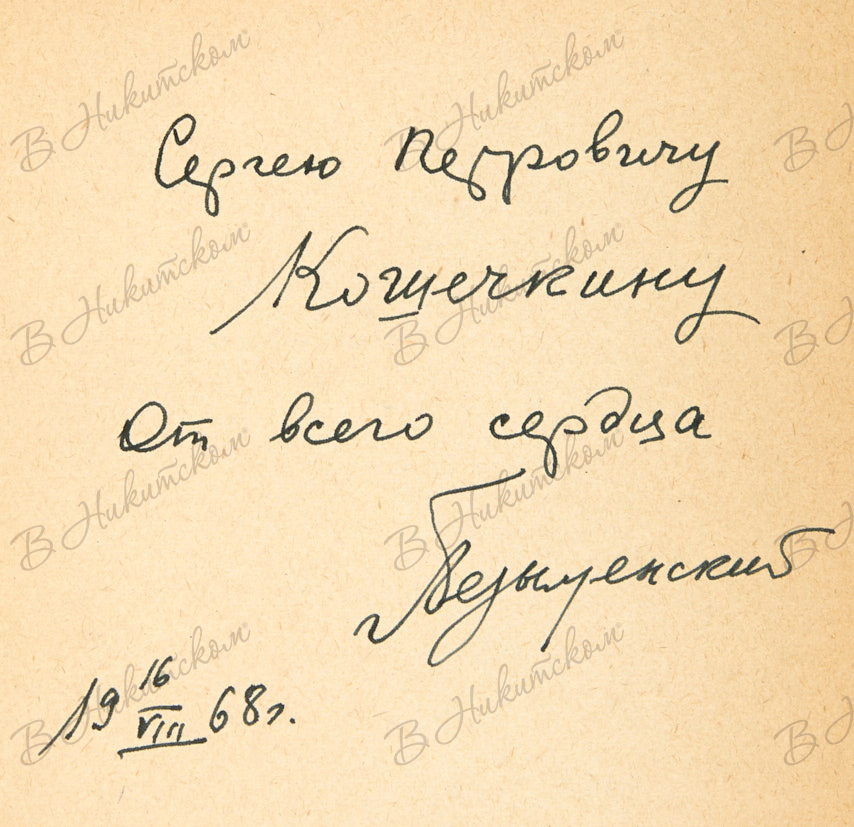 Сергею Петровичу
Кошечкину
От всего сердца
Безыменский
19 16/VIII 68 г.
В Никитском